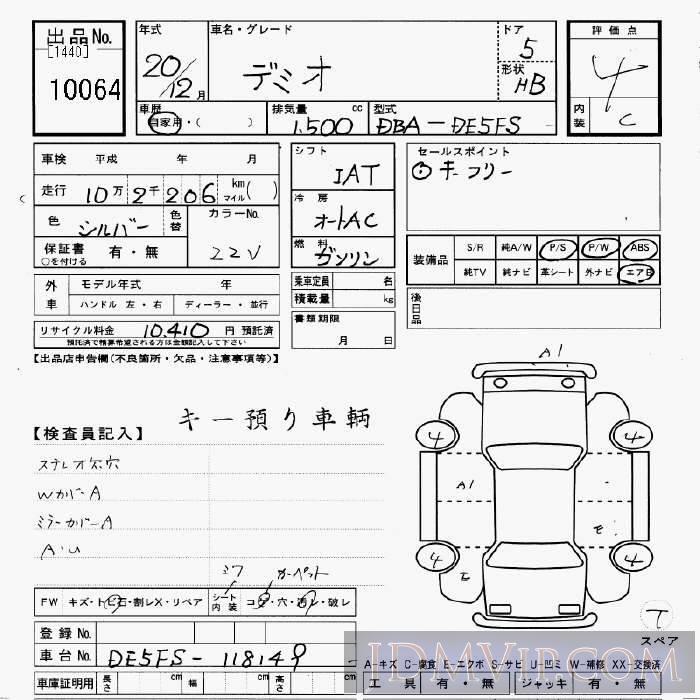 出品No.
[1440]
10064
年式
20/12月
車名・グレード
デミオ
ドア
5
形状
HB
評価点
4
内装
C
車歴
自家用・( )
排気量 cc
1,500
型式
DBA-DE5FS
車検 平成 年 月
走行 10万2千206 km マイル( )
色 シルバー 色替
カラーNo.
22V
保証書 有・無
○を付ける
外車
モデル年式 年
ハンドル 左・右 ディーラー・並行
リサイクル料金 10,410 円 預託済
預託済で精算希望される方は金額記入して下さい
シフト
IAT
冷房
オートAC
燃料
ガソリン
乗車定員 名
積載量 kg
書類期限
月 日
セールスポイント
⊙キーフリー
装備品
S/R 純A/W P/S P/W ABS
純TV 純ナビ 革シート 外ナビ エアB
後日品
【出品店申告欄(不良箇所・欠品・注意事項等)】
キー預り車輌
【検査員記入】
ステレオ欠穴
WカバーA
ミラーカバーA
A・U
A1
4
4
A1
E
4
4
E
シワ カーペット
FW キズ・トビ石・割レX・リペア
シート内装 コゲ・穴・汚レ・破レ
T
スペア
登録No.
車台No. DE5FS-118149
A-キズ C-腐食 E-エクボ S-サビ U-凹ミ W-補修 XX-交換済
車庫証明用 長さ cm 幅 cm 高さ cm
工具 有・無 ジャッキ 有・無
JDMVIP.COM